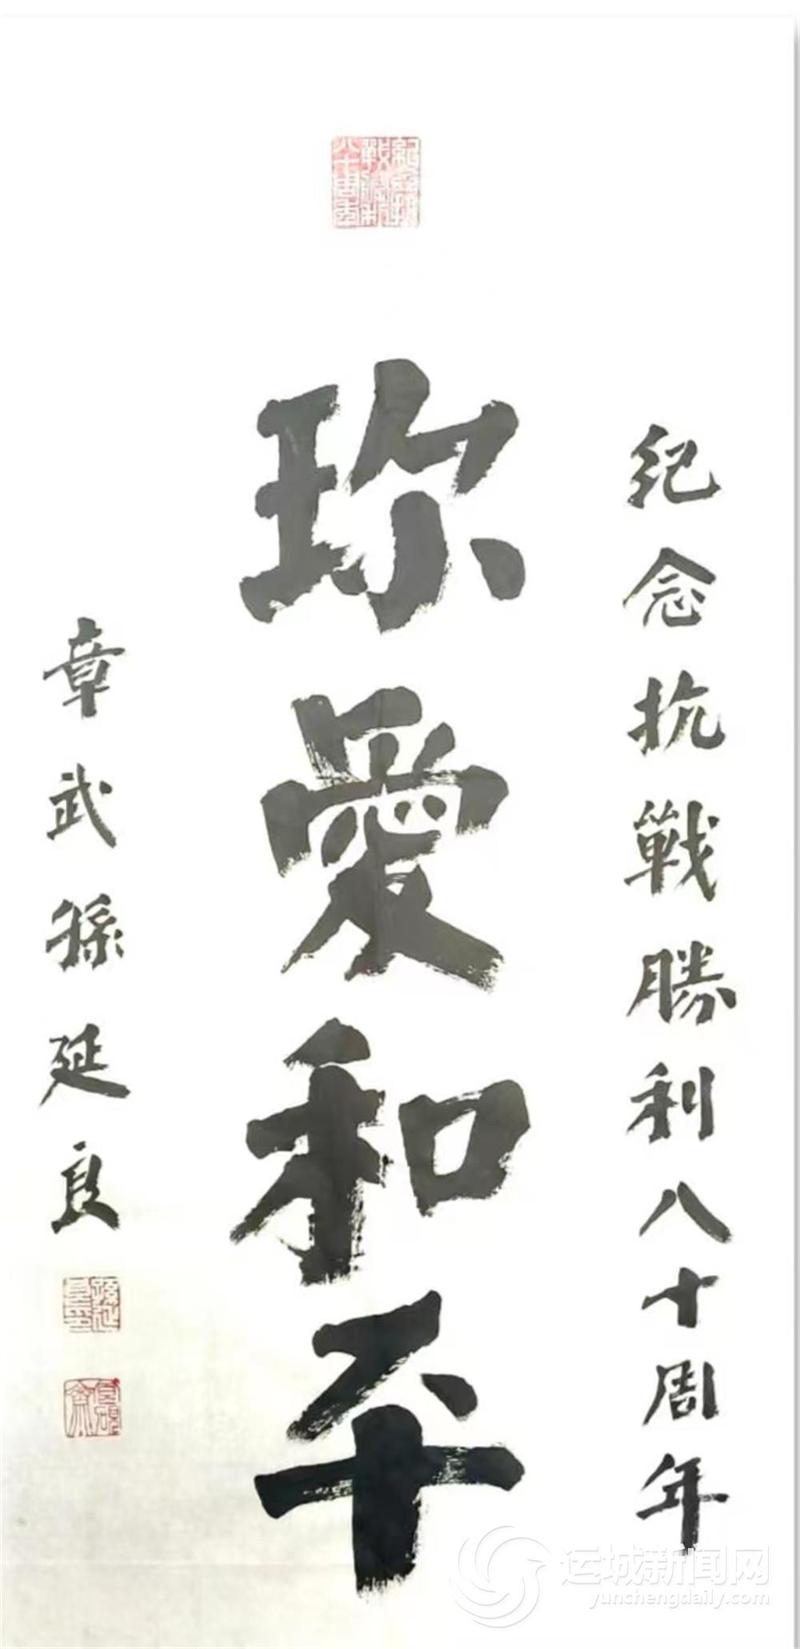 紀念抗戰勝利八十周年
珎愛和平
章武孫延良
運城新闻网
yunchengdaily.com